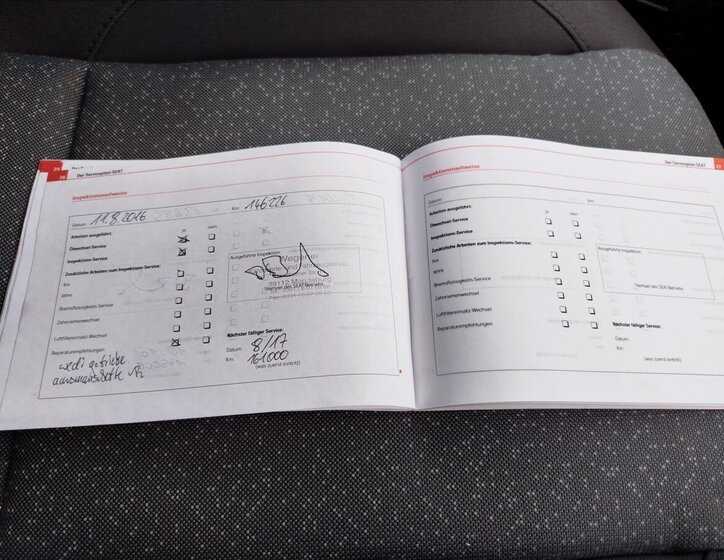 24
26
Der Serviceplan SEAT
Inspektionsnachweise
Datum: 11.8.2016
Km: 146226
Arbeiten ausgeführt:
ja
nein
Ölwechsel-Service
Inspektions-Service
Zusätzliche Arbeiten zum Inspektions-Service:
Km
Jahre
Bremsflüssigkeits-Service
Zahnriemenwechsel
Luftfiltereinsatz-Wechsel
Reparaturempfehlungen
Ausgeführte Inspektion:
Wegener
39112 Magdeburg
Stempel des SEAT Betriebs
Nächster fälliger Service:
Datum: 8/17
Km: 161000
(was zuerst eintritt)
Der Serviceplan SEAT
Inspektionsnachweise
Datum:
Km:
Arbeiten ausgeführt:
ja
nein
Ölwechsel-Service
Inspektions-Service
Zusätzliche Arbeiten zum Inspektions-Service:
Km
Jahre
Bremsflüssigkeits-Service
Zahnriemenwechsel
Luftfiltereinsatz-Wechsel
Reparaturempfehlungen
Ausgeführte Inspektion:
Stempel des SEAT Betriebs
Nächster fälliger Service:
Datum:
Km:
(was zuerst eintritt)